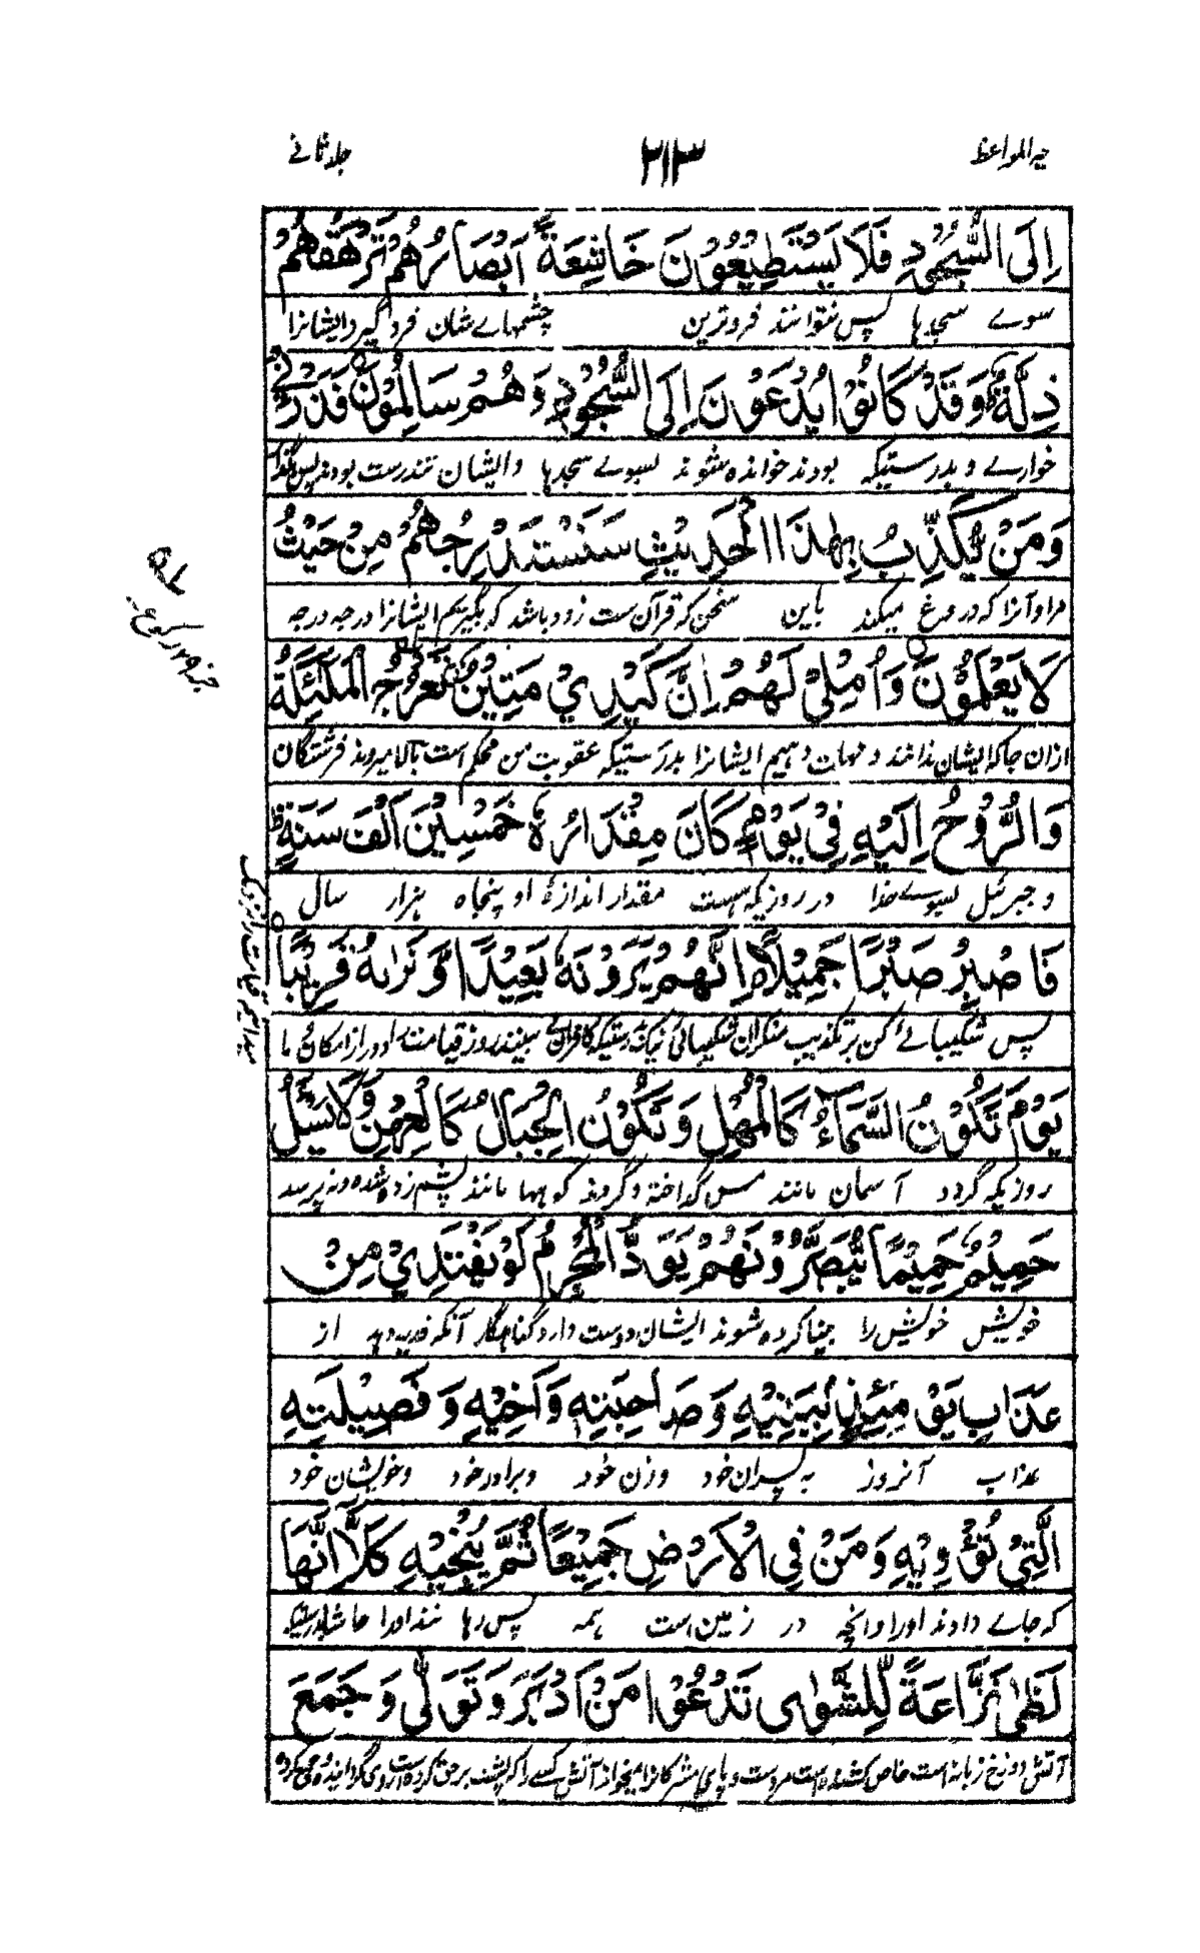 جلد ثانے ۲۱۳ المواعظ
اِلَى السُّجُوْدِ فَلَا يَسْتَطِيْعُوْنَ خَاشِعَةً اَبْصَارُهُمْ تَرْهَقُهُمْ
سوے سجدہا پس نتوانند فروترین چشمہاے شان فرد گیرد ایشانرا
ذِلَّةٌ وَقَدْ كَانُوْا يُدْعَوْنَ اِلَى السُّجُوْدِ وَهُمْ سَالِمُوْنَ فَذَرْنِيْ
خوارے و بدرستیکہ بودند خواندہ شوند بسوے سجدہا وایشان تندرست بودند پس بگذار
وَمَنْ يُّكَذِّبُ بِهٰذَا الْحَدِيْثِ سَنَسْتَدْرِجُهُمْ مِنْ حَيْثُ
مرا و آنرا کہ دروغ میکند باین سخن کہ قرآن ست زود باشد کہ بگیریم ایشانرا درجہ درجہ
لَا يَعْلَمُوْنَ وَاُمْلِيْ لَهُمْ اِنَّ كَيْدِيْ مَتِيْنٌ تَعْرُجُ الْمَلٰٓئِكَةُ
ازان جا کہ ایشان ندانند و مہلت دہیم ایشانرا بدرستیکہ عقوبت من محکم است بالا میروند فرشتگان
وَالرُّوْحُ اِلَيْهِ فِيْ يَوْمٍ كَانَ مِقْدَارُهٗ خَمْسِيْنَ اَلْفَ سَنَةٍ
و جبرئیل بسوے خدا در روزیکہ ہست مقدار اندازۂ او پنجاہ ہزار سال
فَاصْبِرْ صَبْرًا جَمِيْلًا اِنَّهُمْ يَرَوْنَهٗ بَعِيْدًا وَّنَرٰىهُ قَرِيْبًا
پس شکیبائے کن بر تکذیب منکران شکیبائی نیک بدرستیکہ کافران مے بینند روز قیامت را دور از امکان و ما
يَوْمَ تَكُوْنُ السَّمَآءُ كَالْمُهْلِ وَتَكُوْنُ الْجِبَالُ كَالْعِهْنِ وَلَا يَسْئَلُ
روزیکہ گردد آسمان مانند مس گداختہ و گردند کوہہا مانند پشم زدہ شدہ و نہ پرسد
حَمِيْمٌ حَمِيْمًا يُّبَصَّرُوْنَهُمْ يَوَدُّ الْمُجْرِمُ لَوْ يَفْتَدِيْ مِنْ
خویش خویش را بینا کردہ شوند ایشان دوست دارد گناہگار آنکہ فدیہ دہد از
عَذَابِ يَوْمِئِذٍ بِبَنِيْهِ وَصَاحِبَتِهٖ وَاَخِيْهِ وَفَصِيْلَتِهِ
عذاب آنروز بہ پسران خود وزن خود و برادر خود و خویشان خود
الَّتِيْ تُؤْوِيْهِ وَمَنْ فِى الْاَرْضِ جَمِيْعًا ثُمَّ يُنْجِيْهِ كَلَّا اِنَّهَا
کہ جاے دادند اورا و آنچہ در زمین است ہمہ پس رہا نند اورا حاشا بدرستیکہ
لَظٰى نَزَّاعَةً لِّلشَّوٰى تَدْعُوْا مَنْ اَدْبَرَ وَتَوَلّٰى وَجَمَعَ
آتش دوزخ زبانہ است کشندہ است پوست سر و پاے مشرکانرا میخواند آتش کسے را کہ پشت بر حق کردہ است و روی گردانیدہ و جمع کردہ